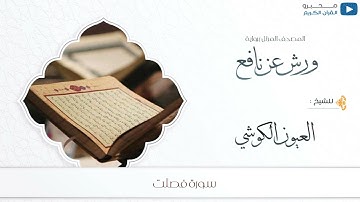 محبرو
القرآن الكريم
المصحف المرتل برواية
ورش عن نافع
للشيخ :
العيون الكوشي
سورة فصلت